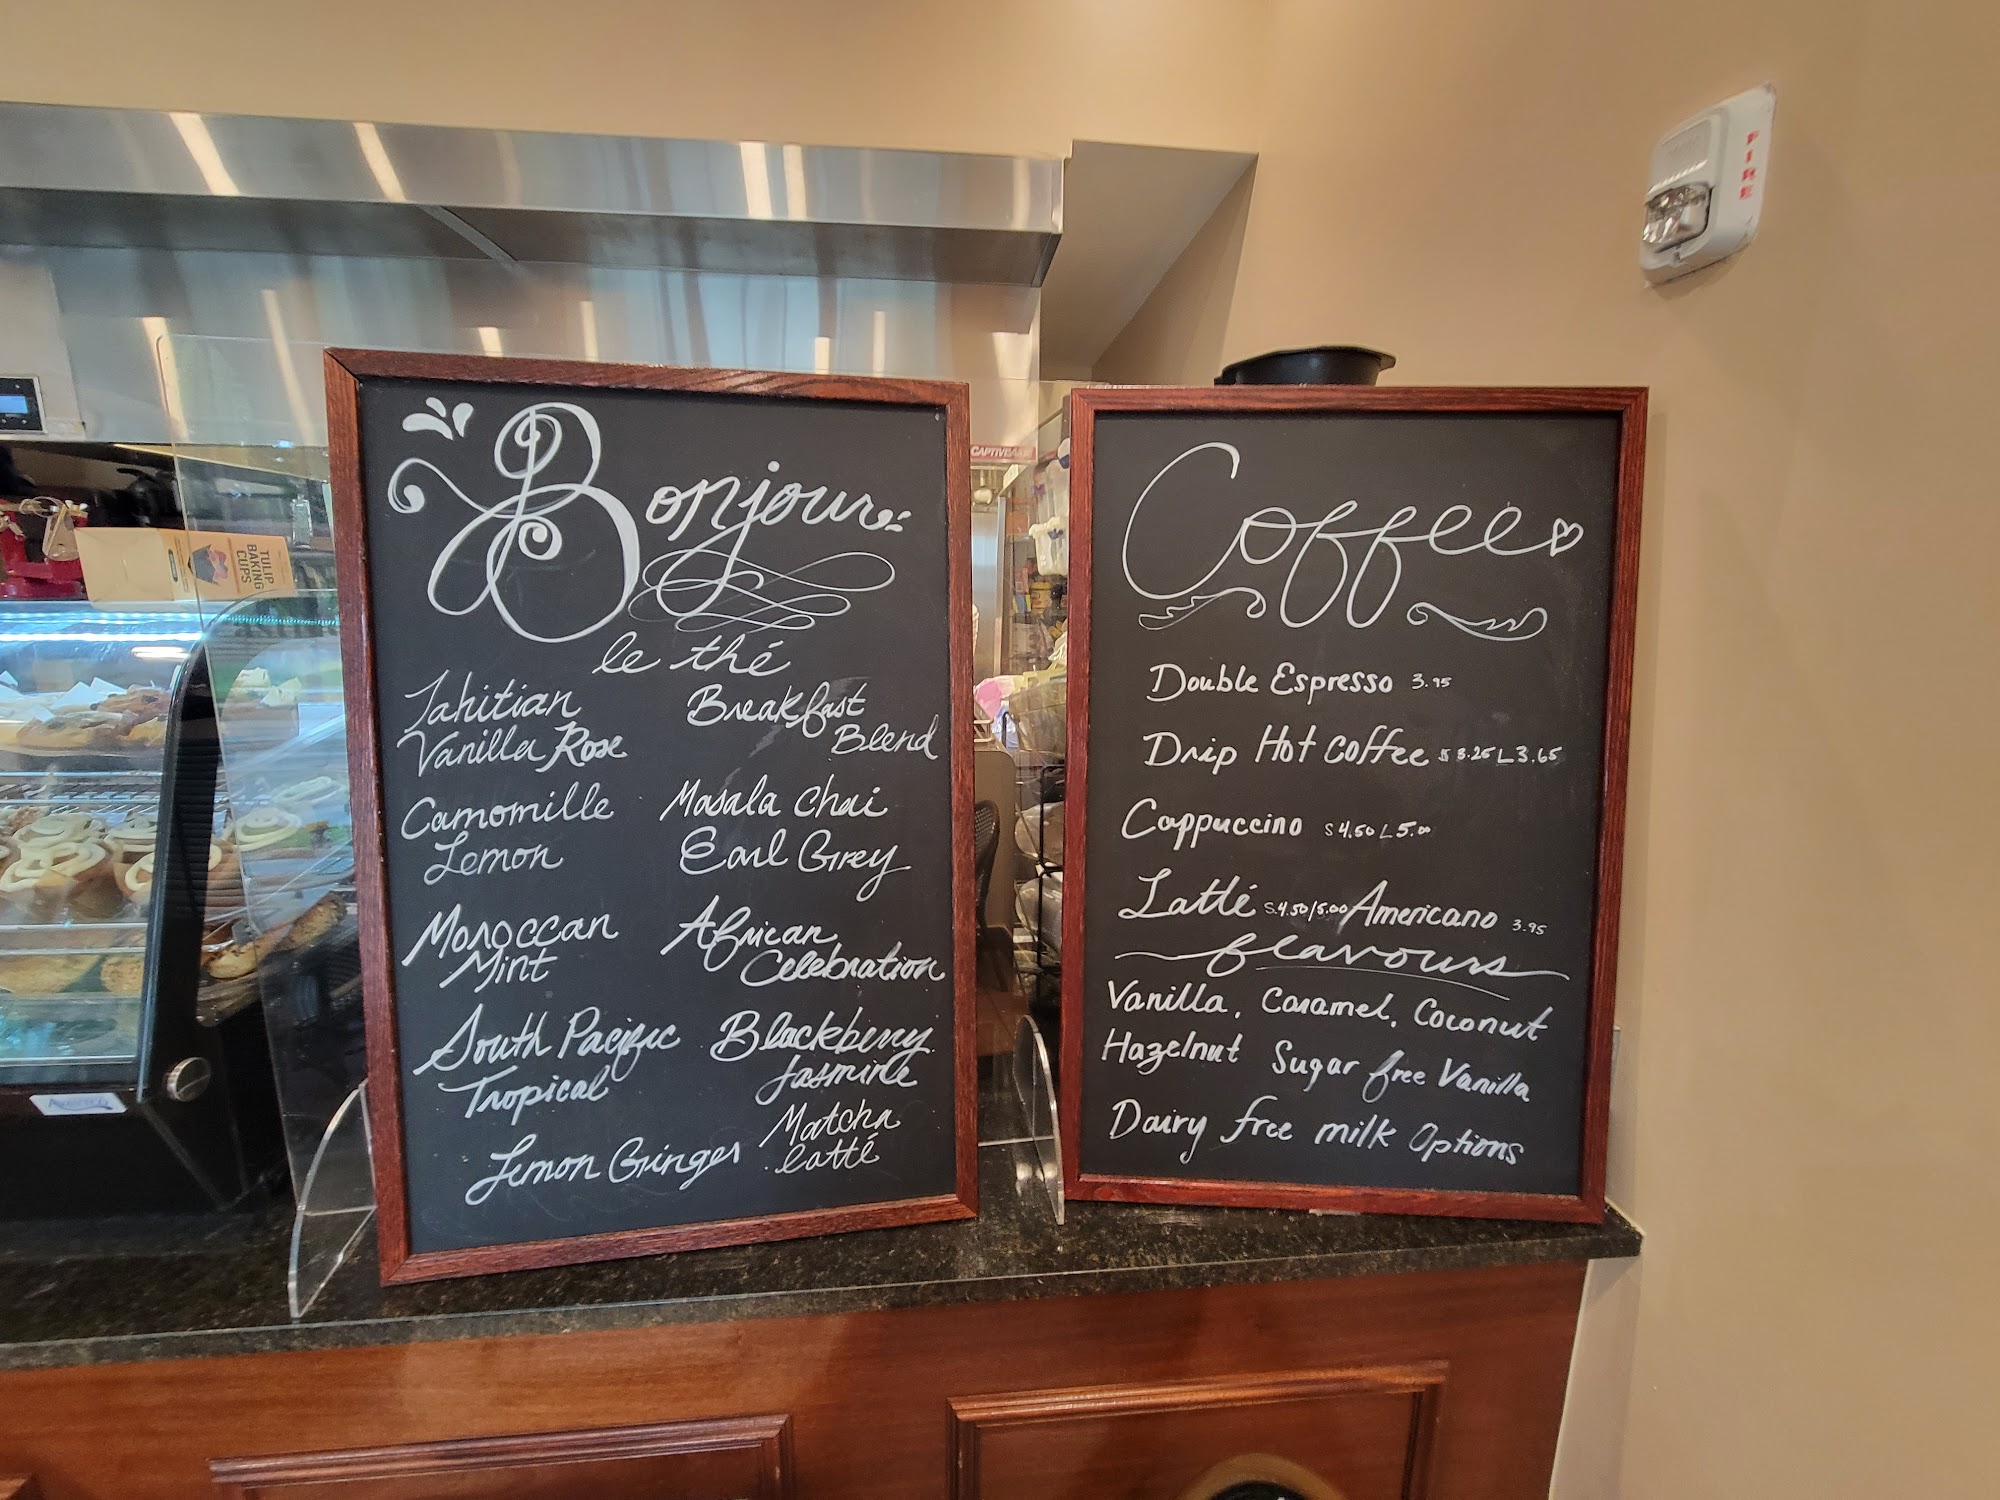 Bonjour
le thé
Tahitian
Vanilla Rose
Camomille
Lemon
Moroccan
Mint
South Pacific
Tropical
Lemon Ginger
Breakfast
Blend
Masala chai
Earl Grey
African
Celebration
Blackberry
Jasmine
Matcha
latté
Coffee
Double Espresso 3.95
Drip Hot Coffee S 3.25 L 3.65
Cappuccino S 4.50 L 5.00
Latté S.4.50/5.00 Americano 3.95
flavours
Vanilla, Caramel, Coconut
Hazelnut Sugar free Vanilla
Dairy free milk Options
FIRE
TULIP
BAKING
CUPS